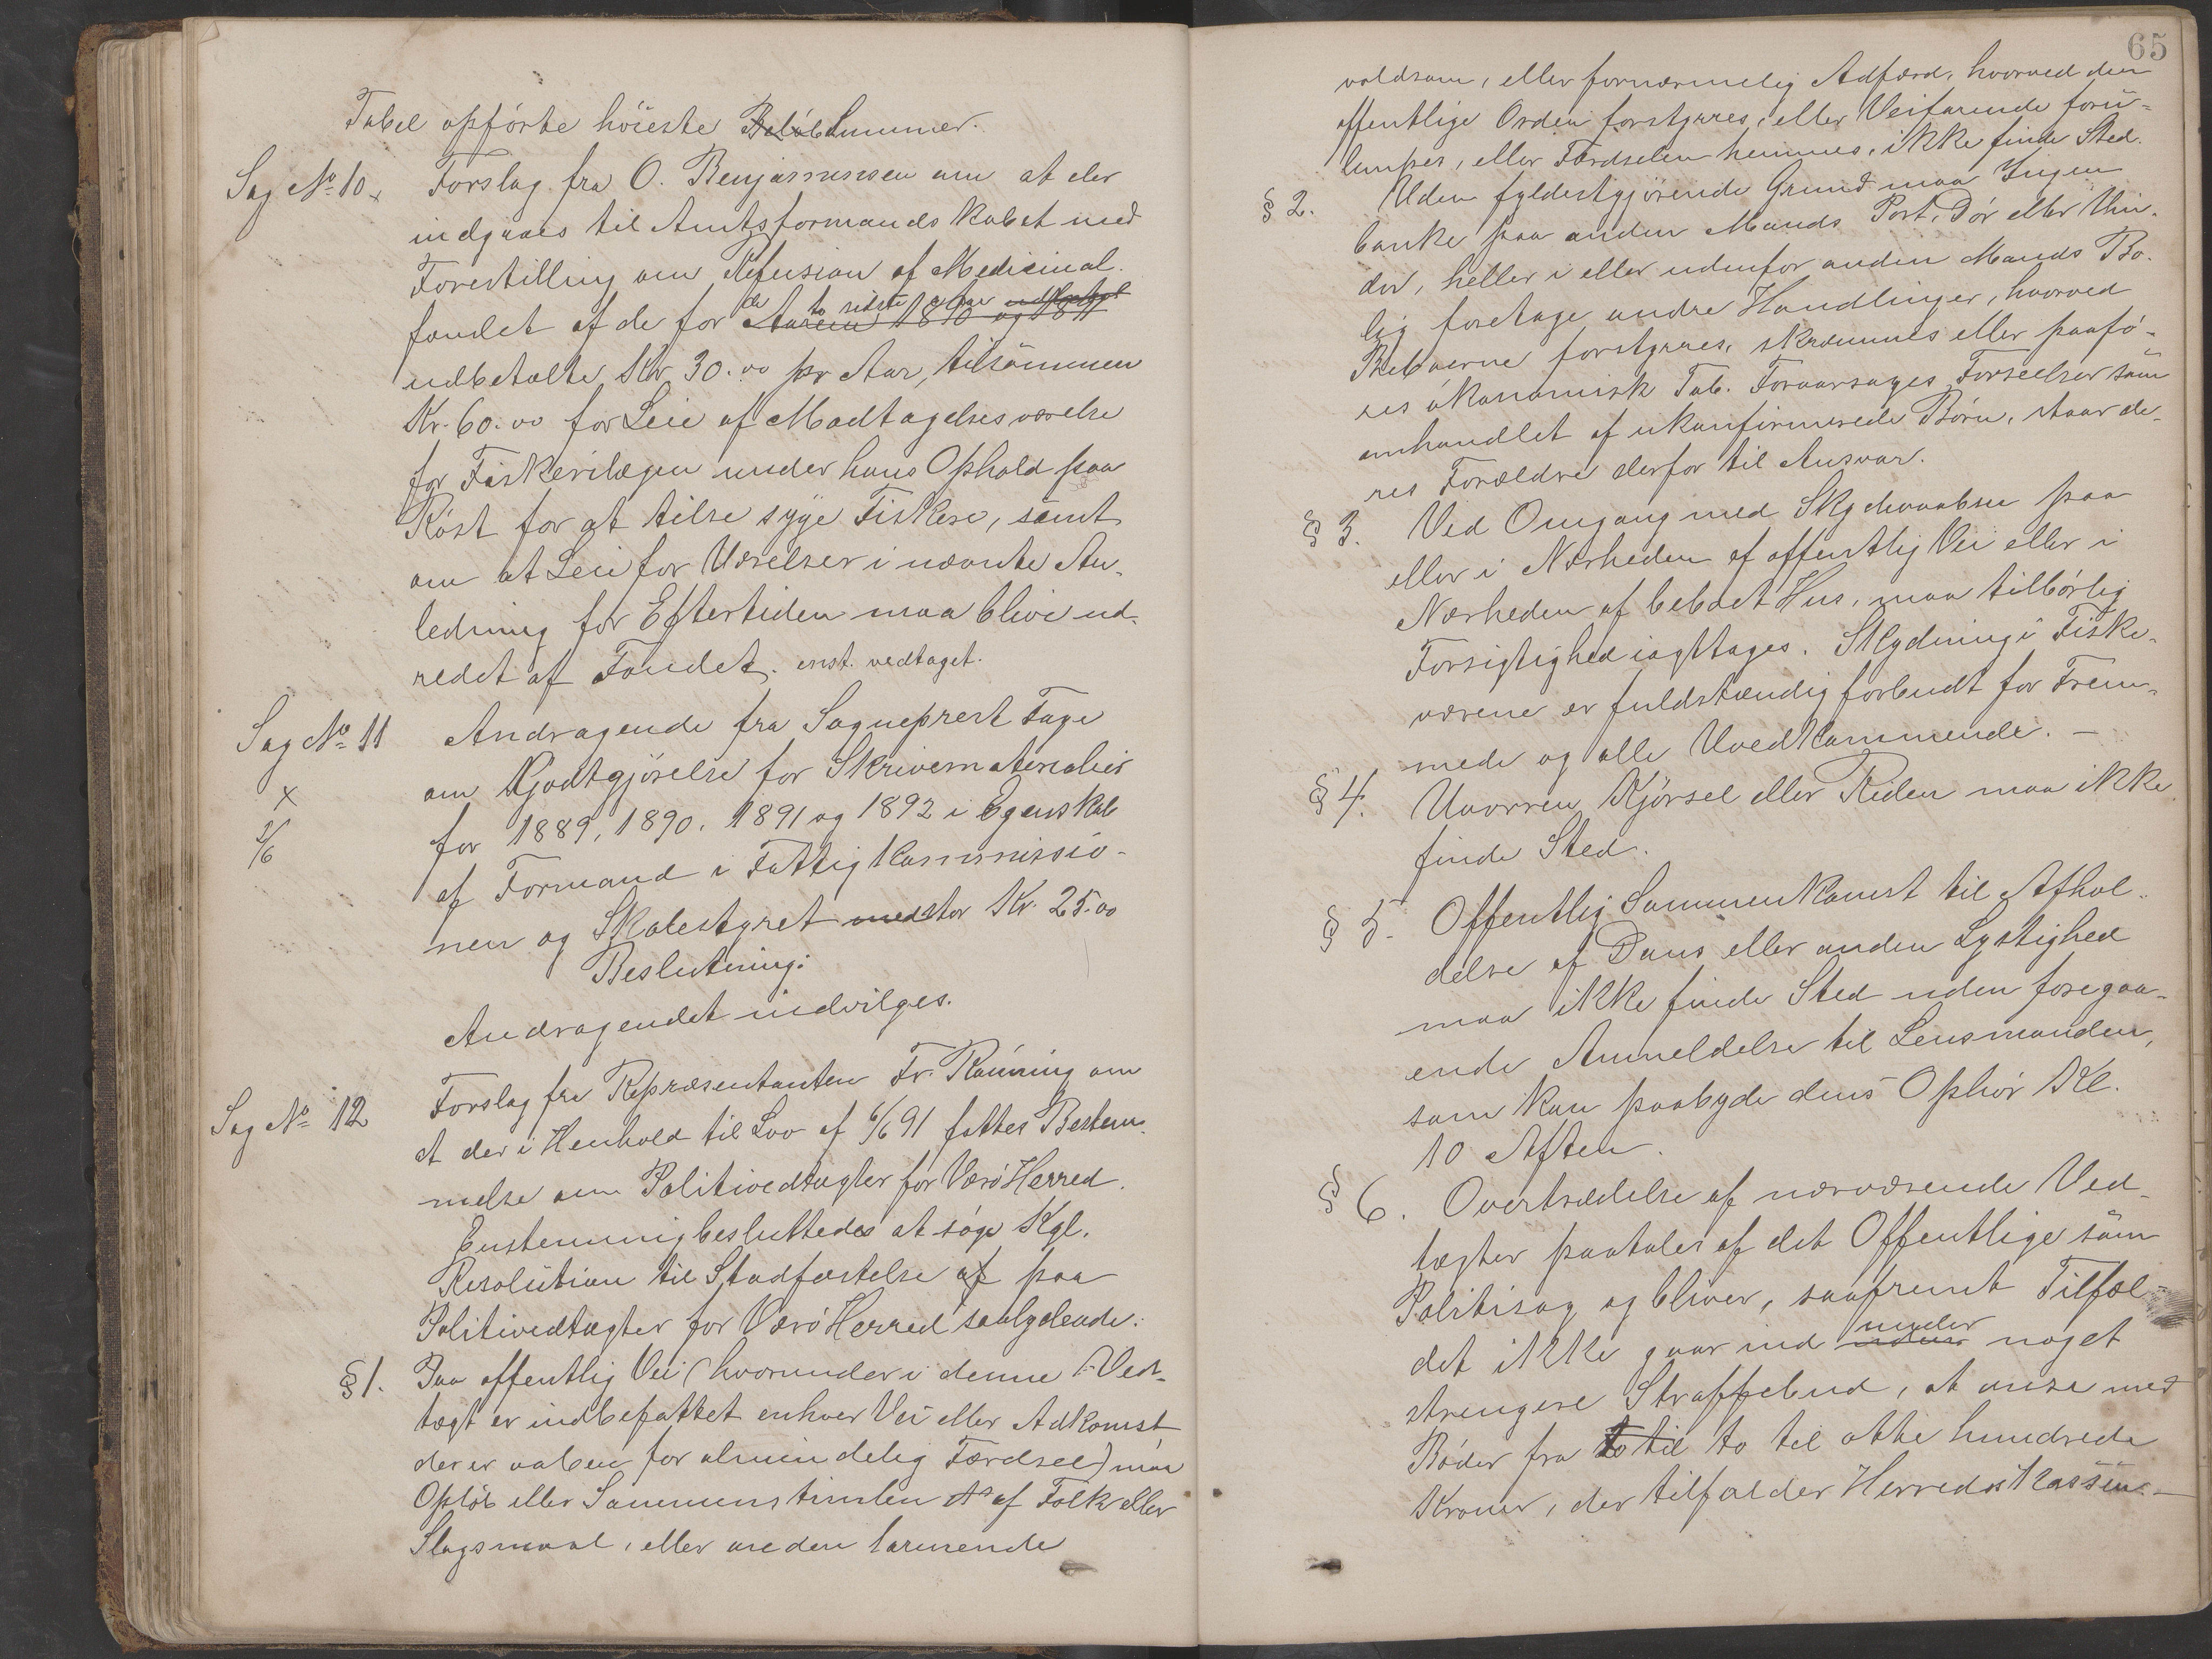 Tabel opførte høieste Beløb Summer.
Sag No 10 x Forslag fra O. Benjaminsen om at der
indgaaes til Amtsformandskabet med
Forestilling om Refusion af Medicinal-
fondet af de for de to sidste Aar Aarene 1890 og 1891
udbetalte Kr. 30.00 pr Aar, tilsammen
Kr. 60.00 for Leie af Modtagelsesværelse
for Fiskerilægen under hans Ophold paa
Røst for at tilse syge Fiskere, samt
om at Leie for Værelser i nævnte An-
ledning for Eftertiden maa blive ud-
redet af Fondet. enst. vedtaget.
Sag No 11 Andragende fra Sogneprest Fage
x om Godtgjørelse for Skrivematerialier
2/6 for 1889, 1890, 1891 og 1892 i Egenskab
af Formand i Fattigkommissio-
nen og Skolestyret med stor Kr. 25.00
Beslutning:
Andragendet indvilges.
Sag No 12 Forslag fra Repræsentanten Fr. Rønning om
at der i Henhold til Lov af 6/6 91 fattes Bestem-
melse om Politivedtægter for Værø Herred.
Enstemmig besluttedes at søge Kgl.
Resolution til Stadfæstelse af paa
Politivedtægter for Værø Herred saalydende:
§ 1. Paa offentlig Vei (hvorunder i denne Ved-
tægt er indbefattet enhver Vei eller Adkomst
der er aaben for almindelig Færdsel) maa
Opløb eller Sammenstimlen af Folk eller
Slagsmaal, eller anden larmende
65
voldsom, eller fornærmelig Adfærd, hvorved den
offentlige Orden forstyrres, eller Veifarende foru-
lempes, eller Færdselen hemmes, ikke finde Sted.
§ 2. Uden fyldestgjørende Grund maa Ingen
banke paa anden Mands Port, Dør eller Vin-
der, heller i eller udenfor anden Mands Bo-
lig foretage andre Handlinger, hvorved
Beboerne forstyrres, skræmmes eller paafø-
res økonomisk Tab. Foraarsages Forseelser som
omhandlet af ukonfirmerede Børn, staar de-
res Forældre derfor til Ansvar.
§ 3. Ved Omgang med Skydevaaben paa
eller i Nærheden af offentlig Vei eller i
Nærheden af beboet Hus, maa tilbørlig
Forsigtighed iagttages. Skydning i Fiske-
værene er fuldstændig forbudt for Frem-
mede og alle Uvedkommende. —
§ 4. Uvorren Kjørsel eller Riden maa ikke
finde Sted.
§ 5. Offentlig Sammenkomst til Afhol-
delse af Dans eller anden Lystighed
maa ikke finde Sted uden foregaa-
ende Anmeldelse til Lensmanden,
som kan paabyde dens Ophør Kl.
10 Aften.
§ 6. Overtrædelse af nærværende Ved-
tægter paatales af det Offentlige som
Politisag og bliver, saafremt Tilfæl-
det ikke gaar ind under noget
strengere Straffebud, at anse med
Bøder fra to til to til otte hundrede
Kroner, der tilfalder Herredskassen. —